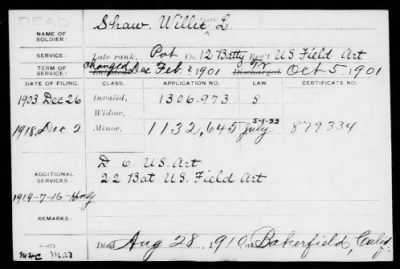 DEAD
Shaw. Willie L
NAME OF
SOLDIER:
SERVICE:
Late rank, Pvt Co. 12 Batty Reg't US Field Art
TERM OF
SERVICE:
changed Dec Feb 1901 Discharged Oct 5, 1901
DATE OF FILING.
CLASS.
APPLICATION NO.
LAW.
CERTIFICATE NO.
1903 Dec 26
Invalid,
1306.973
S
Widow,
1918, Dec 2
Minor,
1132,645
July
879334
ADDITIONAL
SERVICES:
D 6 U.S. Art
22 Bat U.S. Field Art
1919-7-16
REMARKS:
Died Aug 28, 1910, at Bakersfield, Calif.